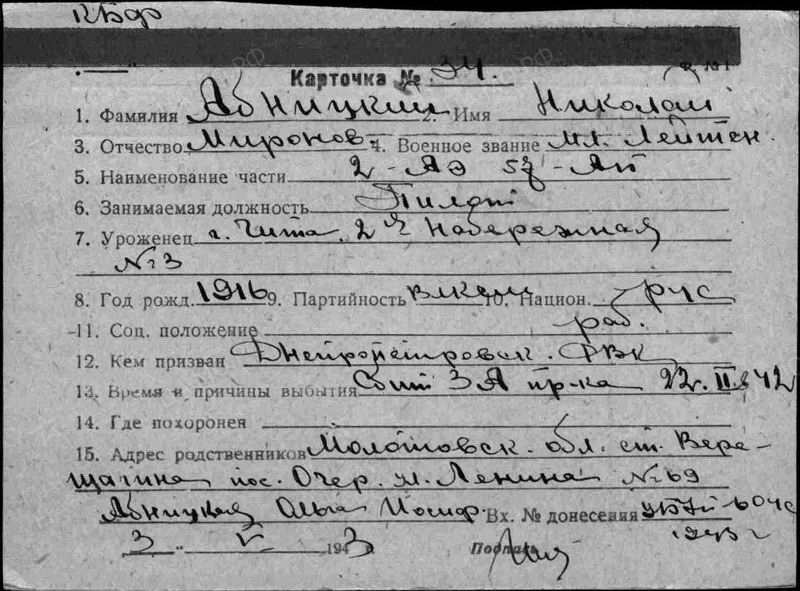 КБФ
Карточка № 34.
1. Фамилия Абницкий 2. Имя Николай
3. Отчество Миронов. 4. Военное звание Мл. Лейтен.
5. Наименование части 2-АЭ 57-АП
6. Занимаемая должность Пилот
7. Уроженец г. Чита, 2я Набережная
№3
8. Год рожд. 1916 9. Партийность ВЛКСМ 10. Национ. рус
11. Соц. положение раб.
12. Кем призван Днепропетровск. РВК
13. Время и причины выбытия Сбит ЗА пр-ка 22. II. 42
14. Где похоронен
15. Адрес родственников Молотовск. обл. ст. Вере-
щагина пос. Очер. ул. Ленина №69
Абницкая Ольга Иосиф. Вх. № донесения
3 V 1943 1943 г
Подпись